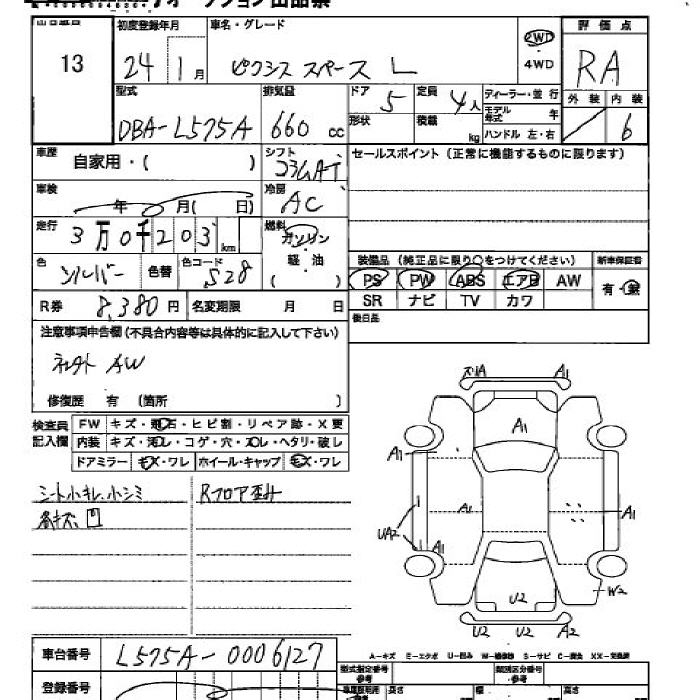 オークション出品票
13
初度登録年月
24 1月
車名・グレード
ピクシス スペース L
2WD
4WD
評価点
RA
外装 内装
6
型式
DBA-L575A
排気量
660 cc
ドア
5
形状
定員
4人
積載
kg
ディーラー・並行
モデル年式 年
ハンドル 左・右
車歴
自家用・( )
シフト
コラムAT
セールスポイント(正常に機能するものに限ります)
車検
年 月( 日)
冷房
AC
走行
3万0千203km
燃料
ガソリン
軽・油
色
シルバー
色替
色コード
S28
装備品(純正品に限り○をつけてください)
新車保証書
PS PW ABS エアB AW
有・無
SR ナビ TV カワ
R券 8,380円
名変期限 月 日
後日品
注意事項申告欄(不具合内容等は具体的に記入して下さい)
社外 AW
修復歴 有 (箇所 )
検査員記入欄
FW キズ・飛石・ヒビ割・リペア跡・X要
内装 キズ・汚レ・コゲ・穴・スレ・ヘタリ・破レ
ドアミラー キズ・ワレ ホイール・キャップ キズ・ワレ
シート小キレ、小シミ
Rフロア歪ミ
A1
A1
A1
A1
A1
A1
A1
UA2
W2
U2
U2 U2 A2
A-キズ E-エクボ U-凹み W-補修跡 S-サビ C-腐食 XX-交換済
車台番号
L575A-0006127
登録番号
型式指定番号
参考
類別区分番号
参考
長さ
幅
高さ